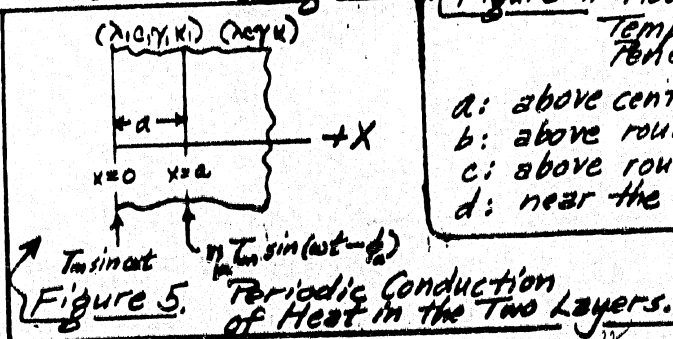 (λ,c,γ,κ,) (λcγκ)
a
+X
x=0 x=a
Tm sin ωt
Figure 5. Periodic Conduction
of Heat in the Two Layers.
Tem
a: above cent
b: above rou
c: above rou
d: near the